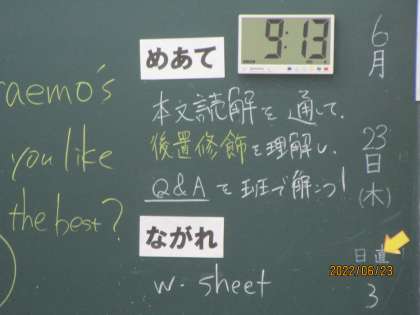 raemo's
you like
the best?
めあて
9:13
本文読解を通して、
後置修飾を理解し、
Q&Aを班で解こう!
ながれ
w.sheet
6
月
23
日
(木)
日直
3
2022/06/23